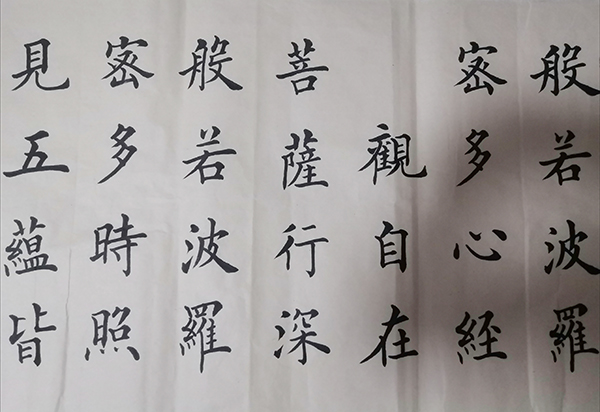 般若波羅
密多心經
觀自在
菩薩行深
般若波羅
密多時照
見五蘊皆